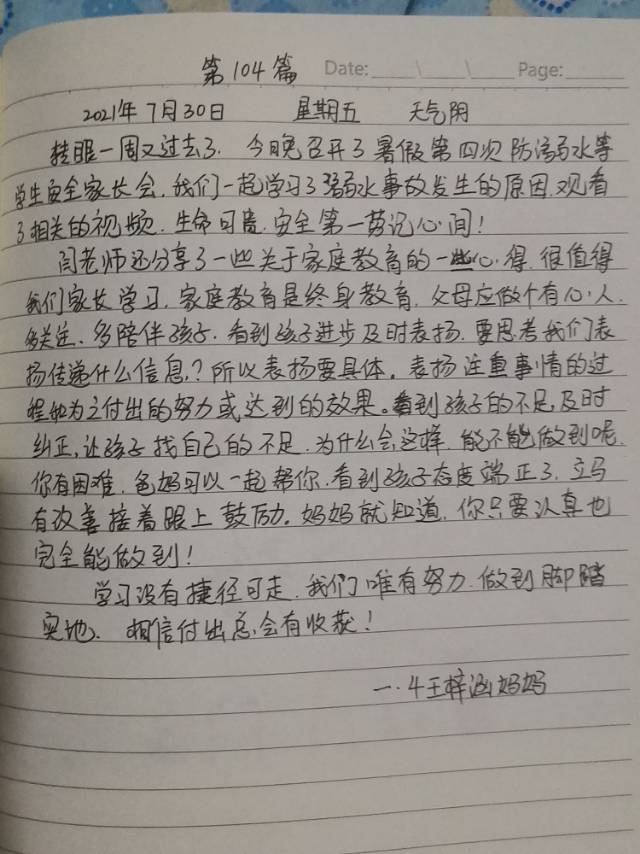 第104篇 Date: Page:
2021年7月30日 星期五 天气阴
转眼一周又过去了. 今晚召开了暑假第四次防溺水等
学生安全家长会, 我们一起学习了溺水事故发生的原因, 观看
了相关的视频. 生命可贵. 安全第一劳记心间!
闫老师还分享了一些关于家庭教育的一些心得. 很值得
我们家长学习. 家庭教育是终身教育. 父母应做个有心人.
多关注、多陪伴孩子. 看到孩子进步及时表扬. 要思考我们表
扬传递什么信息? 所以表扬要具体. 表扬注重事情的过
程如为之付出的努力或达到的效果。看到孩子的不足, 及时
纠正, 让孩子找自己的不足. 为什么会这样. 能不能做到呢.
你有困难. 爸妈可以一起帮你. 看到孩子态度端正了. 立马
有改善接着跟上鼓励。妈妈就知道. 你只要认真也
完全能做到!
学习没有捷径可走. 我们唯有努力. 做到脚踏
实地. 相信付出总会有收获!
一.4王梓涵妈妈